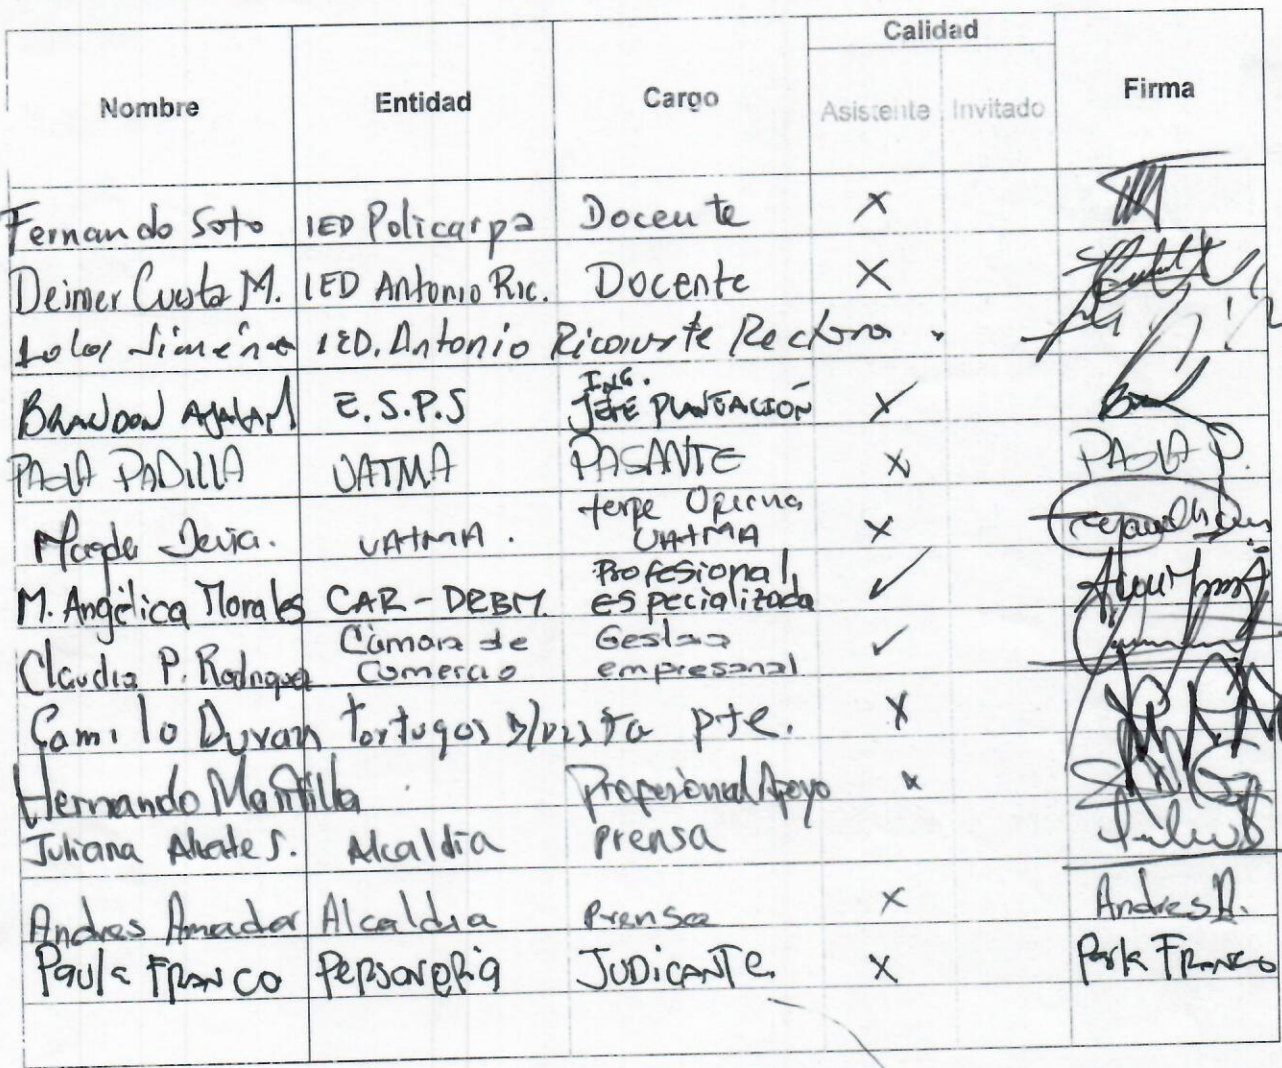 Calidad
Nombre Entidad Cargo Asistente Invitado Firma
Fernando Soto IED Policarpa Docente X
Deimer Cuesta M. IED Antonio Ric. Docente X
IED. Antonio Ricaurte Rectora .
BRANDON E.S.P.S ING. JEFE PLANEACIÓN X
PAOLA PADILLA UATMA PASANTE X PAOLA P.
Magda Devia. UATMA. UATMA X
M. Angélica Morales CAR - DRBM. Profesional especializada ✓
Claudia P. Rodriguez Cámara de Comercio empresarial ✓
Camilo Duran Tortugas pte. X
Hernando Mantilla Profesional Apoyo x
Juliana S. Alcaldía prensa
Andres Amador Alcaldia prensa X Andres A.
Paula FRANCO Personería JUDICANTE. X Paula FRANCO